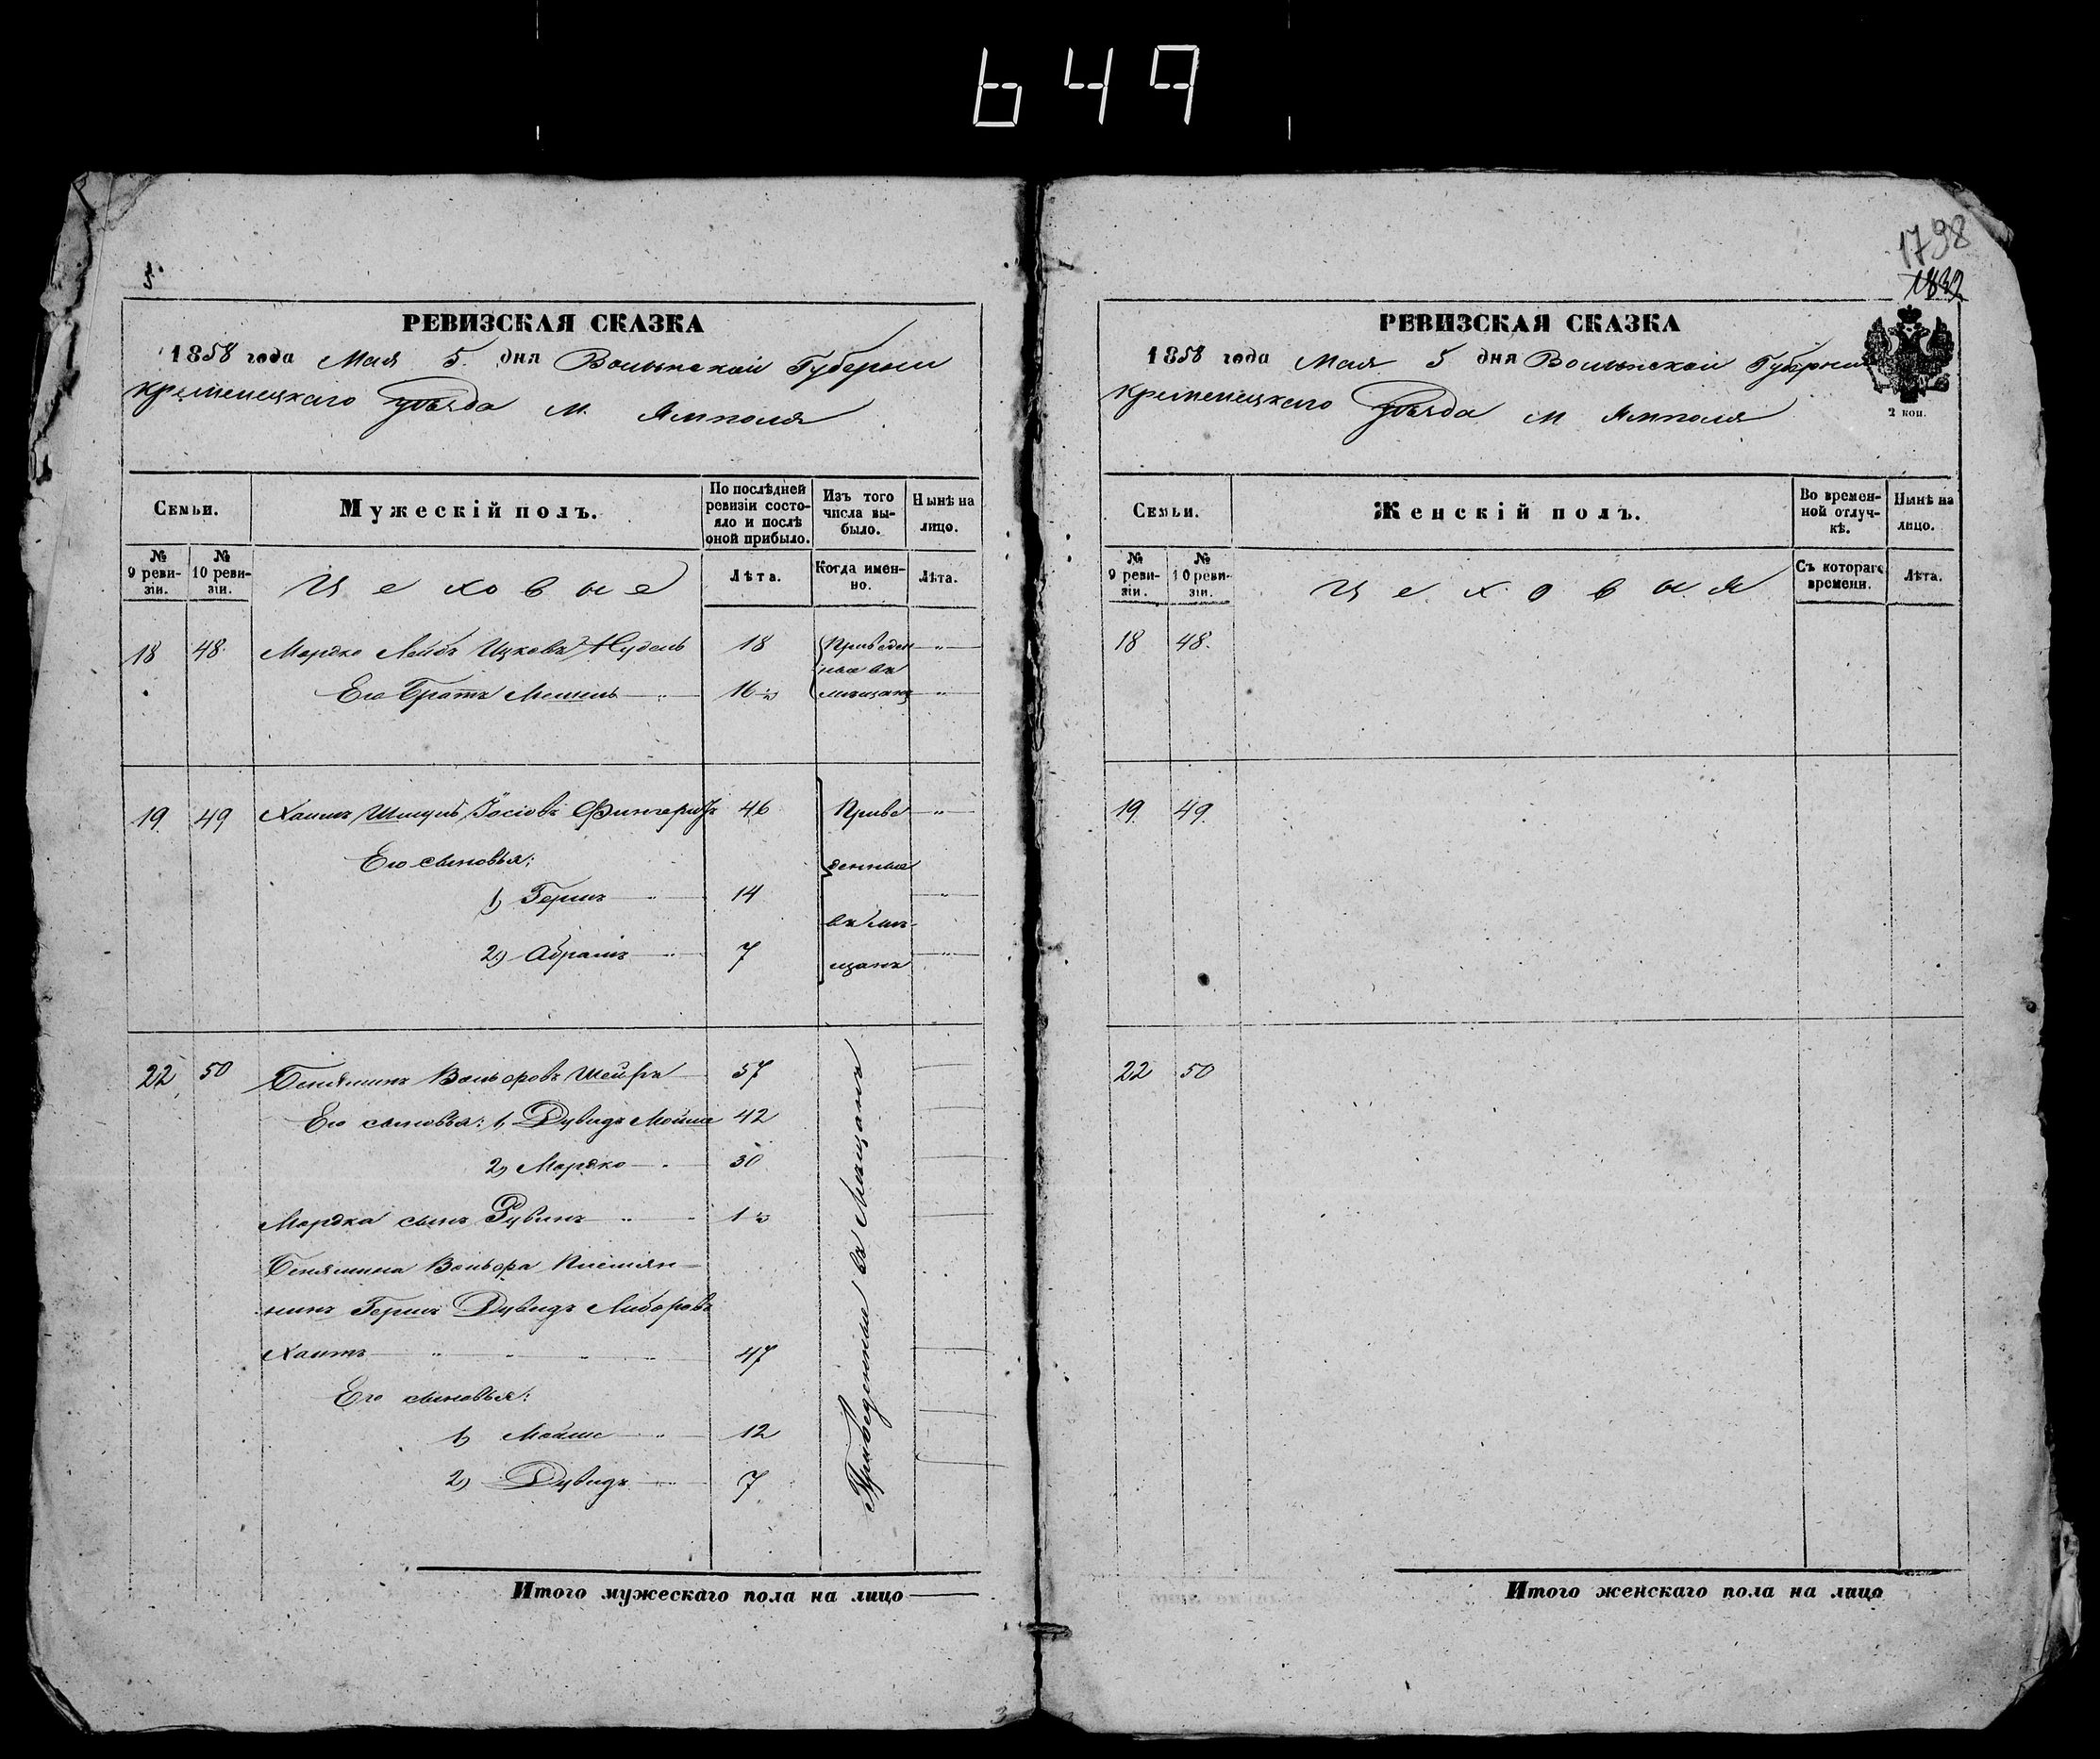 649
5.
РЕВИЗСКАЯ СКАЗКА
1858 года Мая 5. дня Волынской Губернiи
Кременецкаго уѣзда М. Ямполя
Семьи.
Мужескiй полъ.
По послѣдней ревизiи состояло и послѣ оной прибыло.
Изъ того числа выбыло.
Нынѣ на лицо.
№ 9 ревизiи.
№ 10 ревизiи.
Цеховые
Лѣта.
Когда именно.
Лѣта.
18 48. Мордко Лейбъ Ицковъ Нудель 18 Приведен
ные въ
Его Братъ 16 мѣщанъ
19. 49 Хаимъ Шмуль Іосiовъ 46 Приве
Его сыновья: денные
1) Гершъ 14
въ мѣ-
2) Абрамъ 7
щанъ
22 50 Бенїаминъ Вольфовъ 57
Его сыновья: 1, Дувидъ Мойше 42
2) Мордко 30
Мордка сынъ Рувинъ 1
Бенямина Вольфа Племян-
никъ Гершъ Дувидъ
Хаимъ 47
Его сыновья:
1) Мойше 12
2) Дувидъ 7
Приведенные въ Мещанъ
Итого мужескаго пола на лицо
1798
1832
РЕВИЗСКАЯ СКАЗКА
1858 года Мая 5 дня Волынской Губернiи
Кременецкаго уѣзда М Ямполя
2 коп.
Семьи.
Женскiй полъ.
Во временной отлучкѣ.
Нынѣ на лицо.
№ 9 ревизiи.
№ 10 ревизiи.
Цеховыя
Съ котораго времени.
Лѣта.
18 48.
19. 49.
22 50
Итого женскаго пола на лицо